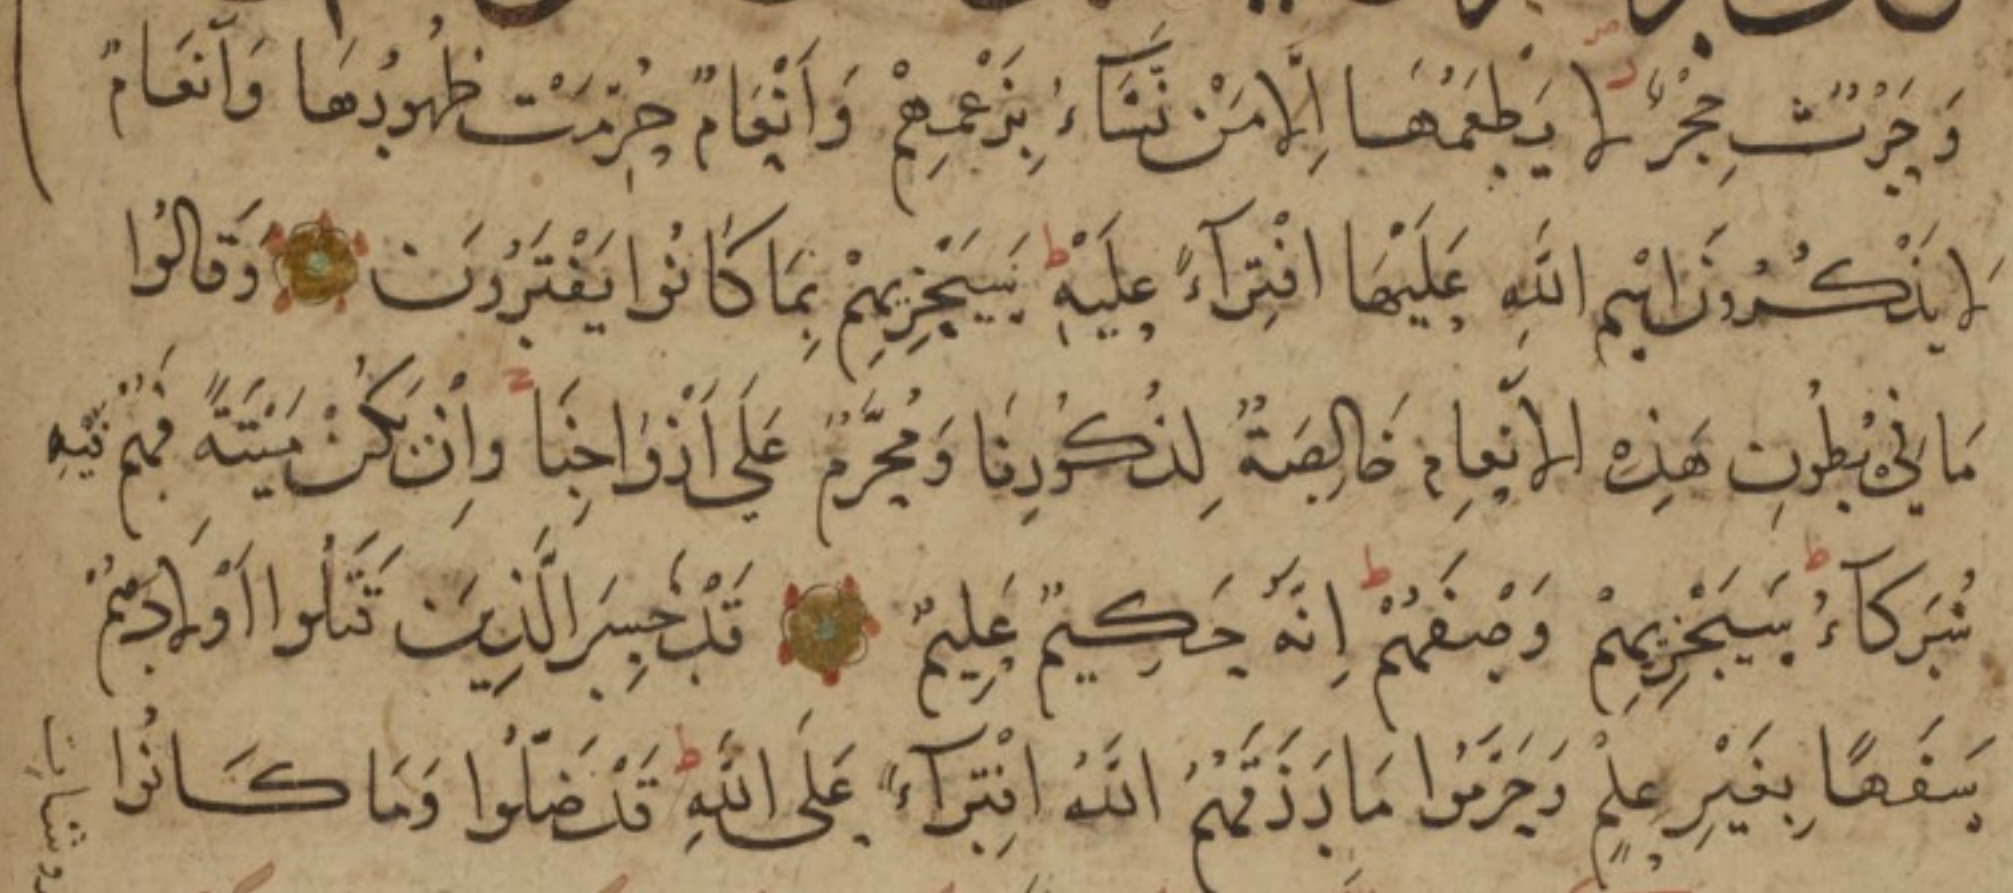 وَحَرْثٌ حِجْرٌ لَا يَطْعَمُهَا إِلَّا مَنْ نَّشَاءُ بِزَعْمِهِمْ وَأَنْعَامٌ حُرِّمَتْ ظُهُورُهَا وَأَنْعَامٌ
لَا يَذْكُرُونَ اسْمَ اللَّهِ عَلَيْهَا افْتِرَآءً عَلَيْهِ ط سَيَجْزِيهِمْ بِمَا كَانُوا يَفْتَرُونَ وَقَالُوا
مَا فِي بُطُونِ هَذِهِ الْأَنْعَامِ خَالِصَةٌ لِذُكُورِنَا وَمُحَرَّمٌ عَلَى أَزْوَاجِنَا وَإِنْ يَكُنْ مَيْتَةً فَهُمْ فِيهِ
شُرَكَآءُ ط سَيَجْزِيهِمْ وَصْفَهُمْ ط إِنَّهُ حَكِيمٌ عَلِيمٌ قَدْ خَسِرَ الَّذِينَ قَتَلُوا أَوْلَادَهُمْ
سَفَهًا بِغَيْرِ عِلْمٍ وَحَرَّمُوا مَا رَزَقَهُمُ اللَّهُ افْتِرَآءً عَلَى اللَّهِ ط قَدْ ضَلُّوا وَمَا كَانُوا